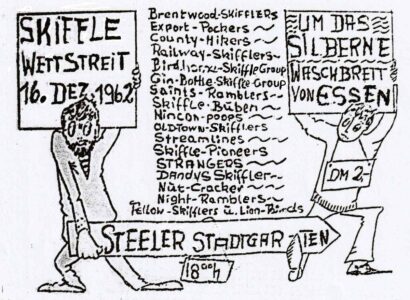 SKIFFLE
WETTSTREIT
16. DEZ. 1962
Brentwood-SKIFFLERS
Export-Pockers
County-Hikers
Railway-Skifflers
Skiffle Group
Gin-Bottle-Skiffle Group
Saints-Ramblers
Skiffle-Büben
Nincon-poops
OLDTOWN-Skifflers
Streamlines
Skiffle-Pioneers
STRANGERS
DANDYS Skiffler
Nut-Cracker
Night-Ramblers
Fellow-Skifflers u. Lion-Birds
UM DAS
SILBERNE
WASCHBRETT
VON ESSEN
DM 2,-
STEELER STADTGAR-TEN
18ººh